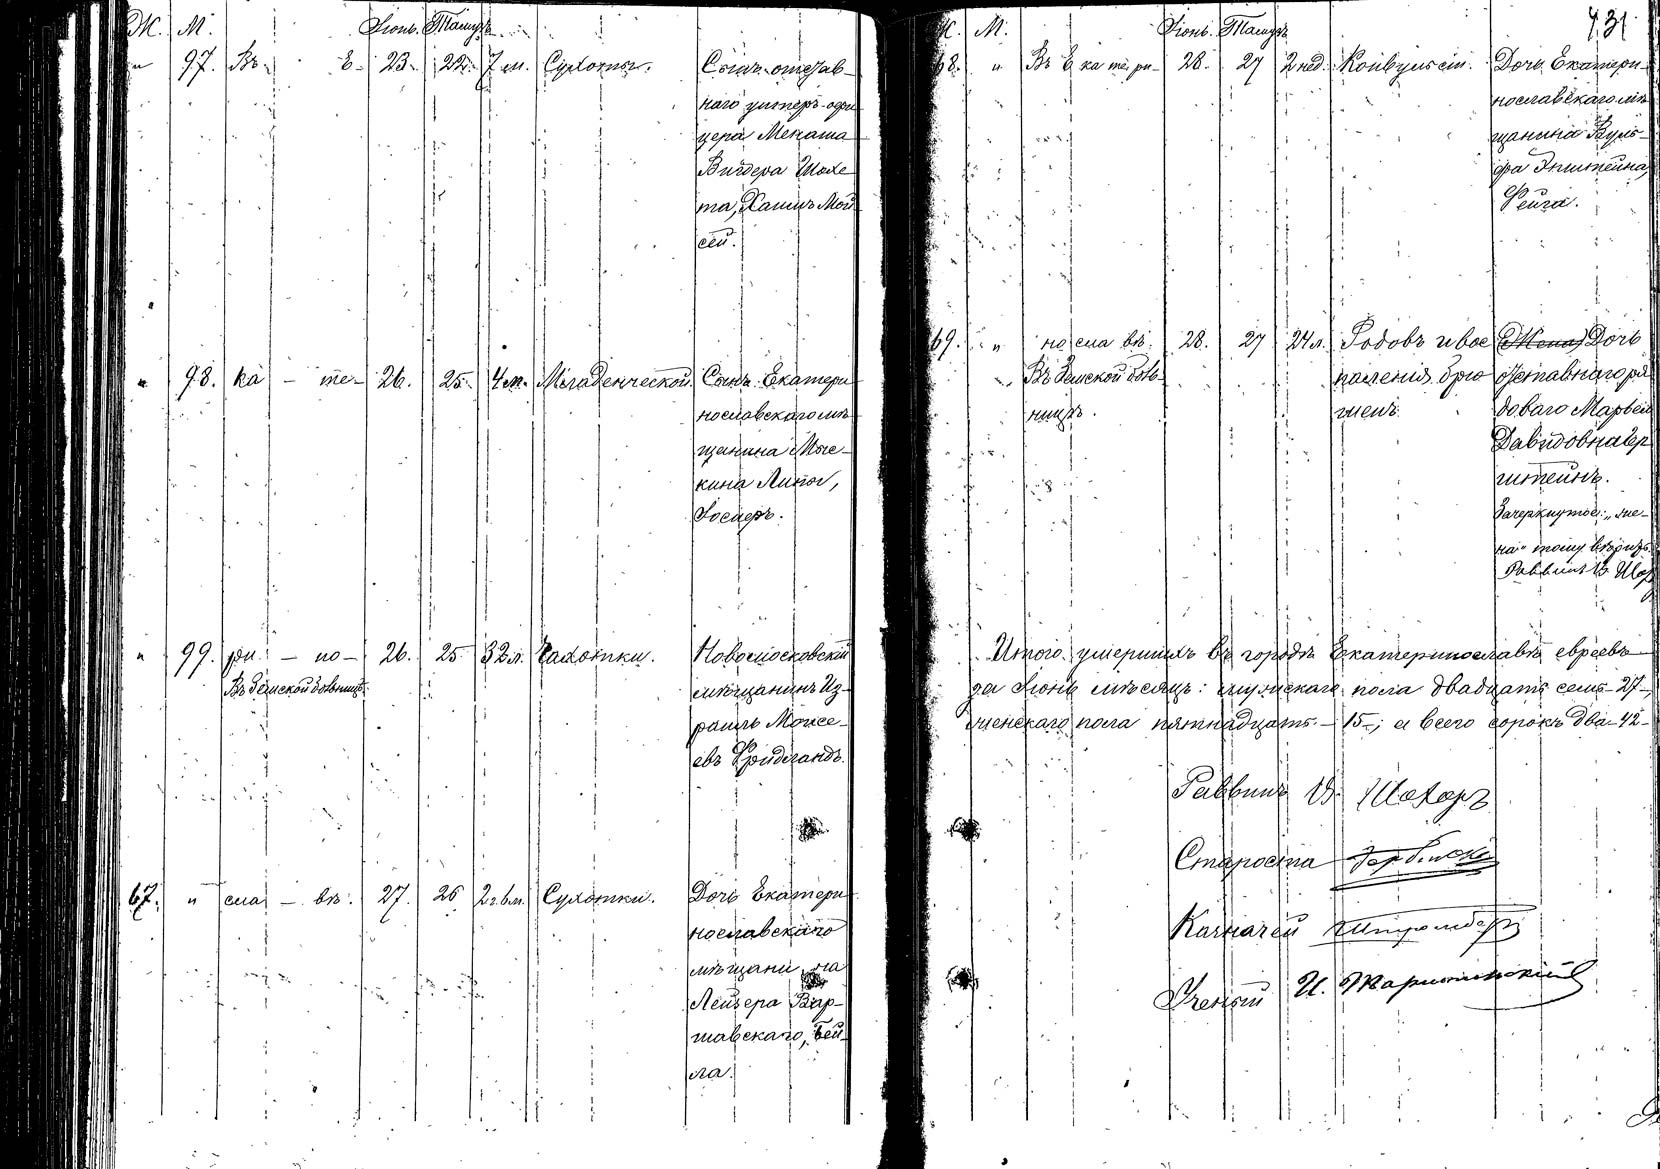 Ж. М. Іюнь. Тамузъ
" 97. Въ Е- 23. 22. 7 м. Сухотки. Сынъ отстав-
наго унтеръ-офи-
цера Менаша
Вигдера Шохе-
та, Хаимъ Мой-
сей.
" 98. ка - те- 26. 25. 4 м. Младенческой. Сынъ Екатери-
нославскаго мѣ-
щанина
Іосифъ.
" 99. ри - но- 26. 25 32 л. Чахотки. Новомосковскій
Въ Земской больницѣ мѣщанинъ Из-
раиль Моисе-
евъ Фридландъ.
67. " сла - вѣ. 27. 26 2 г. 6 м. Сухотки. Дочь Екатери-
нославскаго
мѣщани на
Лейзера Вар-
шавскаго, Бей-
ла.
431
Ж. М. Іюнь. Тамузъ
68. " Въ Е ка те ри- 28. 27 2 нед. Конвульсіи. Дочь Екатери-
нославскаго мѣ-
щанина Вуль-
фа Эпштейна,
Фейга.
69. " но сла вѣ. 28. 27 24 л. Родовъ и вос- (Жена) Дочь
Въ Земской боль- паленія брю- Отставнаго ря-
ницѣ. шины доваго
Давидовна
штейнъ.
Зачеркнутое: „же-
на" тому
Раввинъ В. Шохоръ
Итого умершихъ въ городѣ Екатеринославѣ евреевъ
за Іюнь мѣсяцъ: мужскаго пола двадцать семь - 27 -,
женскаго пола пятнадцать - 15 -; а всего сорокъ два - 42 -
Раввинъ В. Шохоръ
Староста
Казначей
Ученый И.